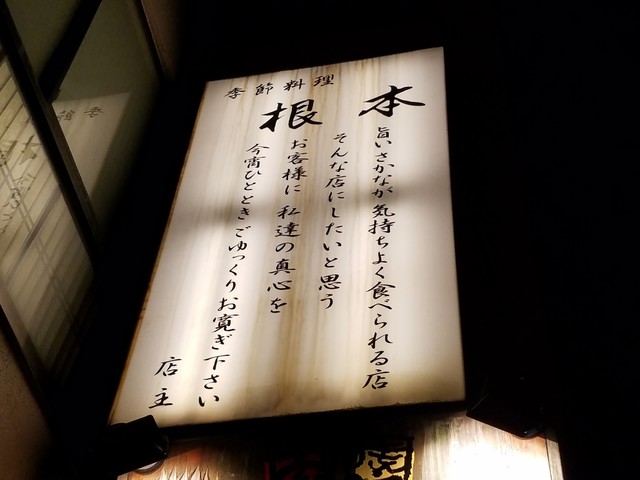 季節料理
根本
旨いさかなが気持ちよく食べられる店
そんな店にしたいと思う
お客様に 私達の真心を
今宵ひとときごゆっくりお寛ぎ下さい
店主